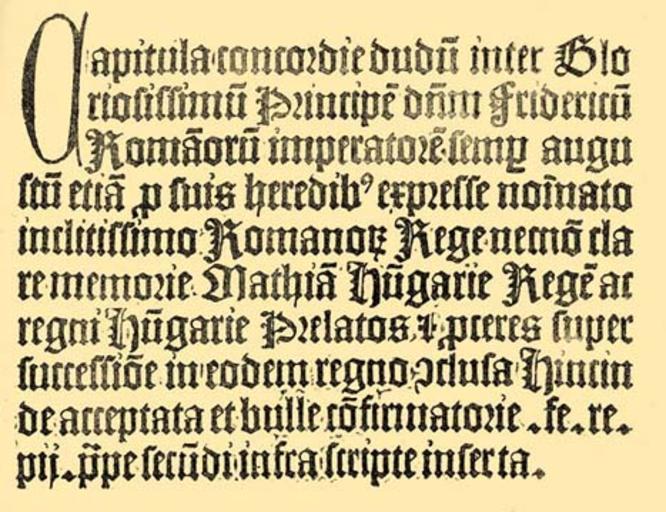 Capitula concordie dudū inter Glo
riosissimū Principē dn̄m Fridericū
Romāorū imperatorē semꝑ augu
stū etiā ꝓ suis heredibꝰ expresse noīnato
inclitissimo Romanoꝝ Rege necnō cla
re memorie Mathiā Hūgarie Regē ac
regni Hūgarie Prelatos ⁊ ꝓceres super
successiōe in eodem regno ꝯclusa Hincin
de acceptata et bulle cōfirmatorie . fe . re .
pij . p̄pe secūdi infra scripte inserta .